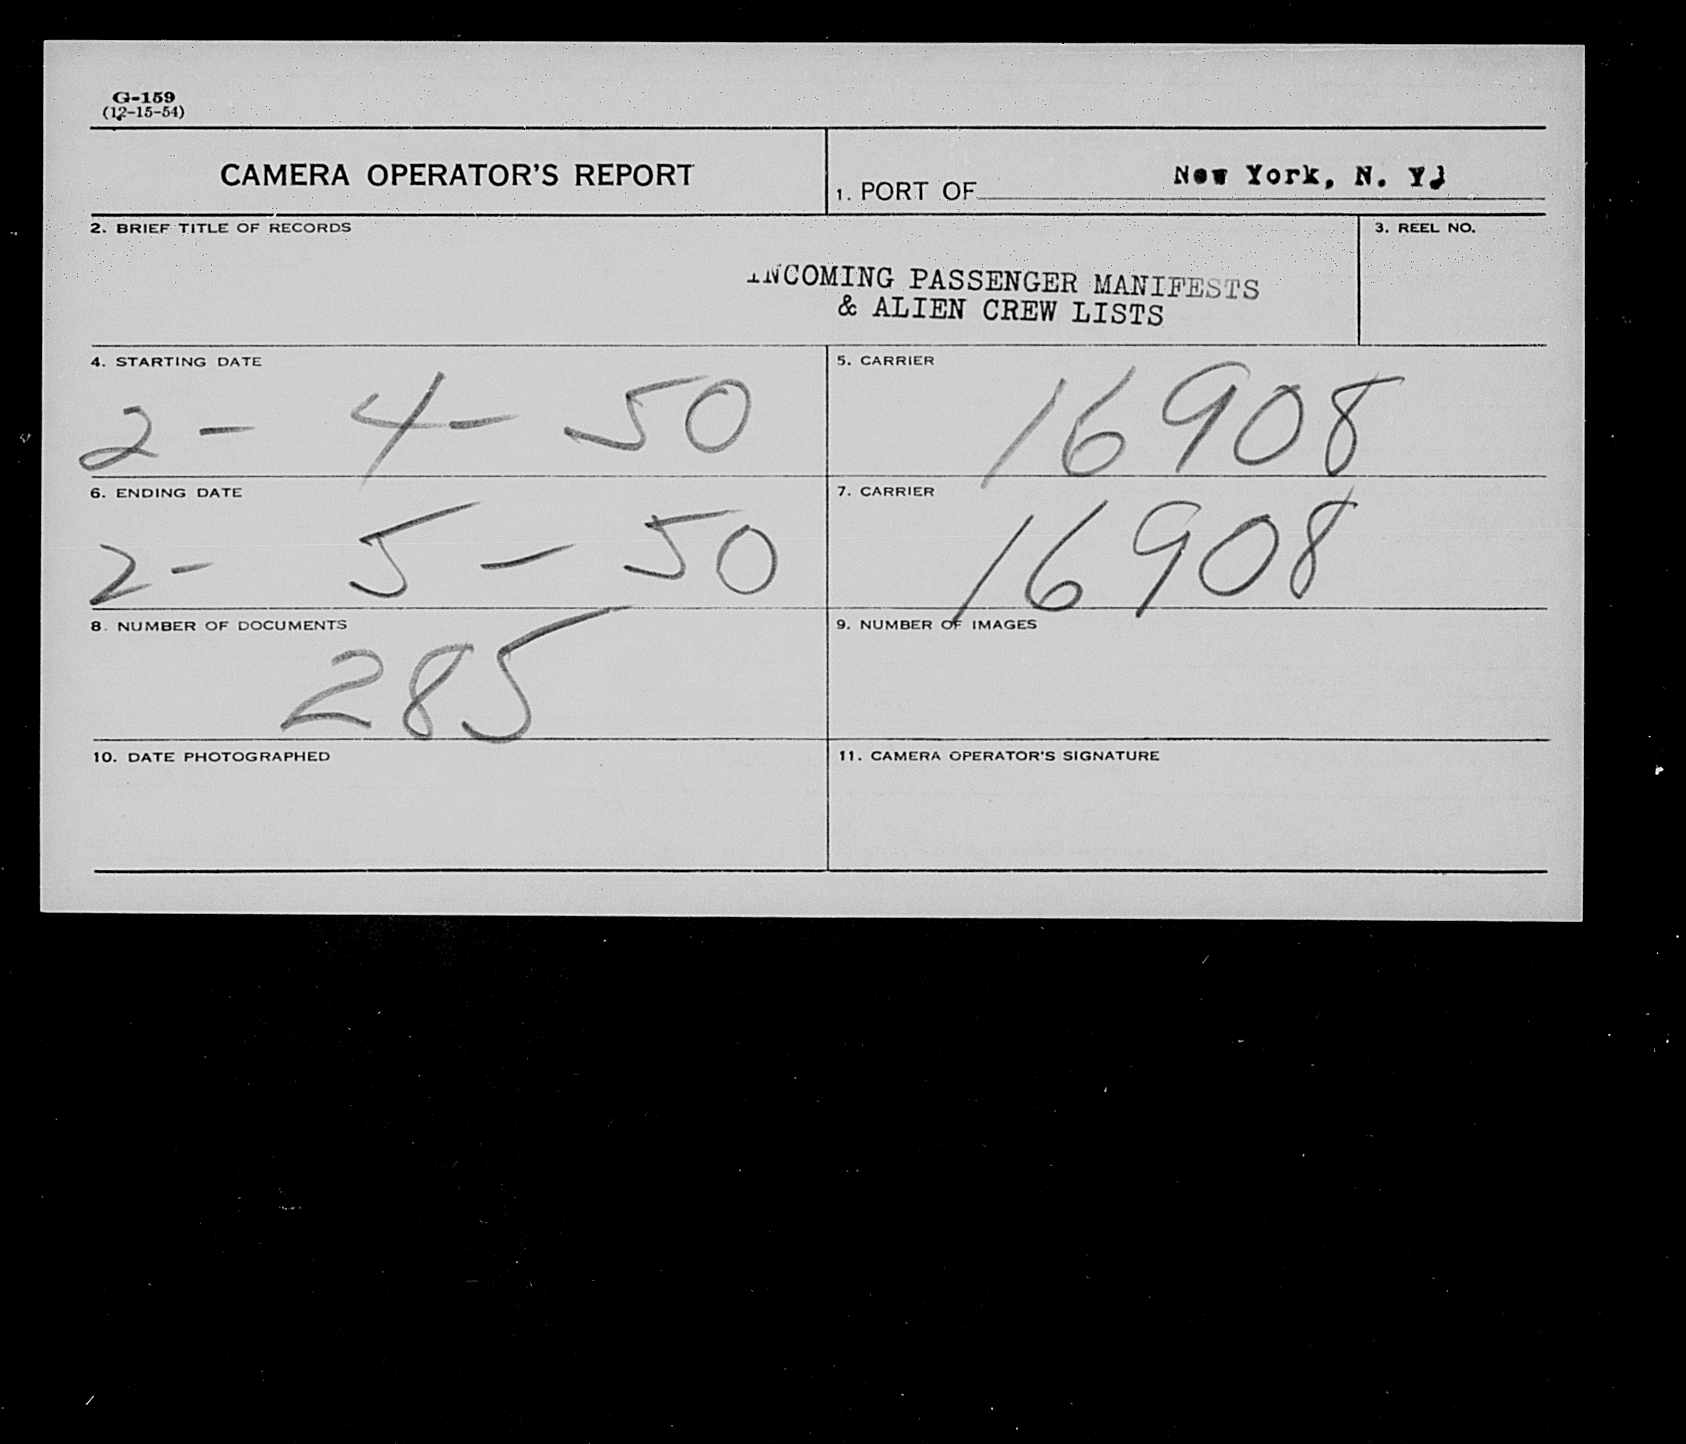 G-159
(12-15-54)
CAMERA OPERATOR'S REPORT
1. PORT OF New York, N. Y.
2. BRIEF TITLE OF RECORDS
3. REEL NO.
INCOMING PASSENGER MANIFESTS
& ALIEN CREW LISTS
4. STARTING DATE
2 - 4 - 50
5. CARRIER
16908
6. ENDING DATE
2 - 5 - 50
7. CARRIER
16908
8. NUMBER OF DOCUMENTS
285
9. NUMBER OF IMAGES
10. DATE PHOTOGRAPHED
11. CAMERA OPERATOR'S SIGNATURE